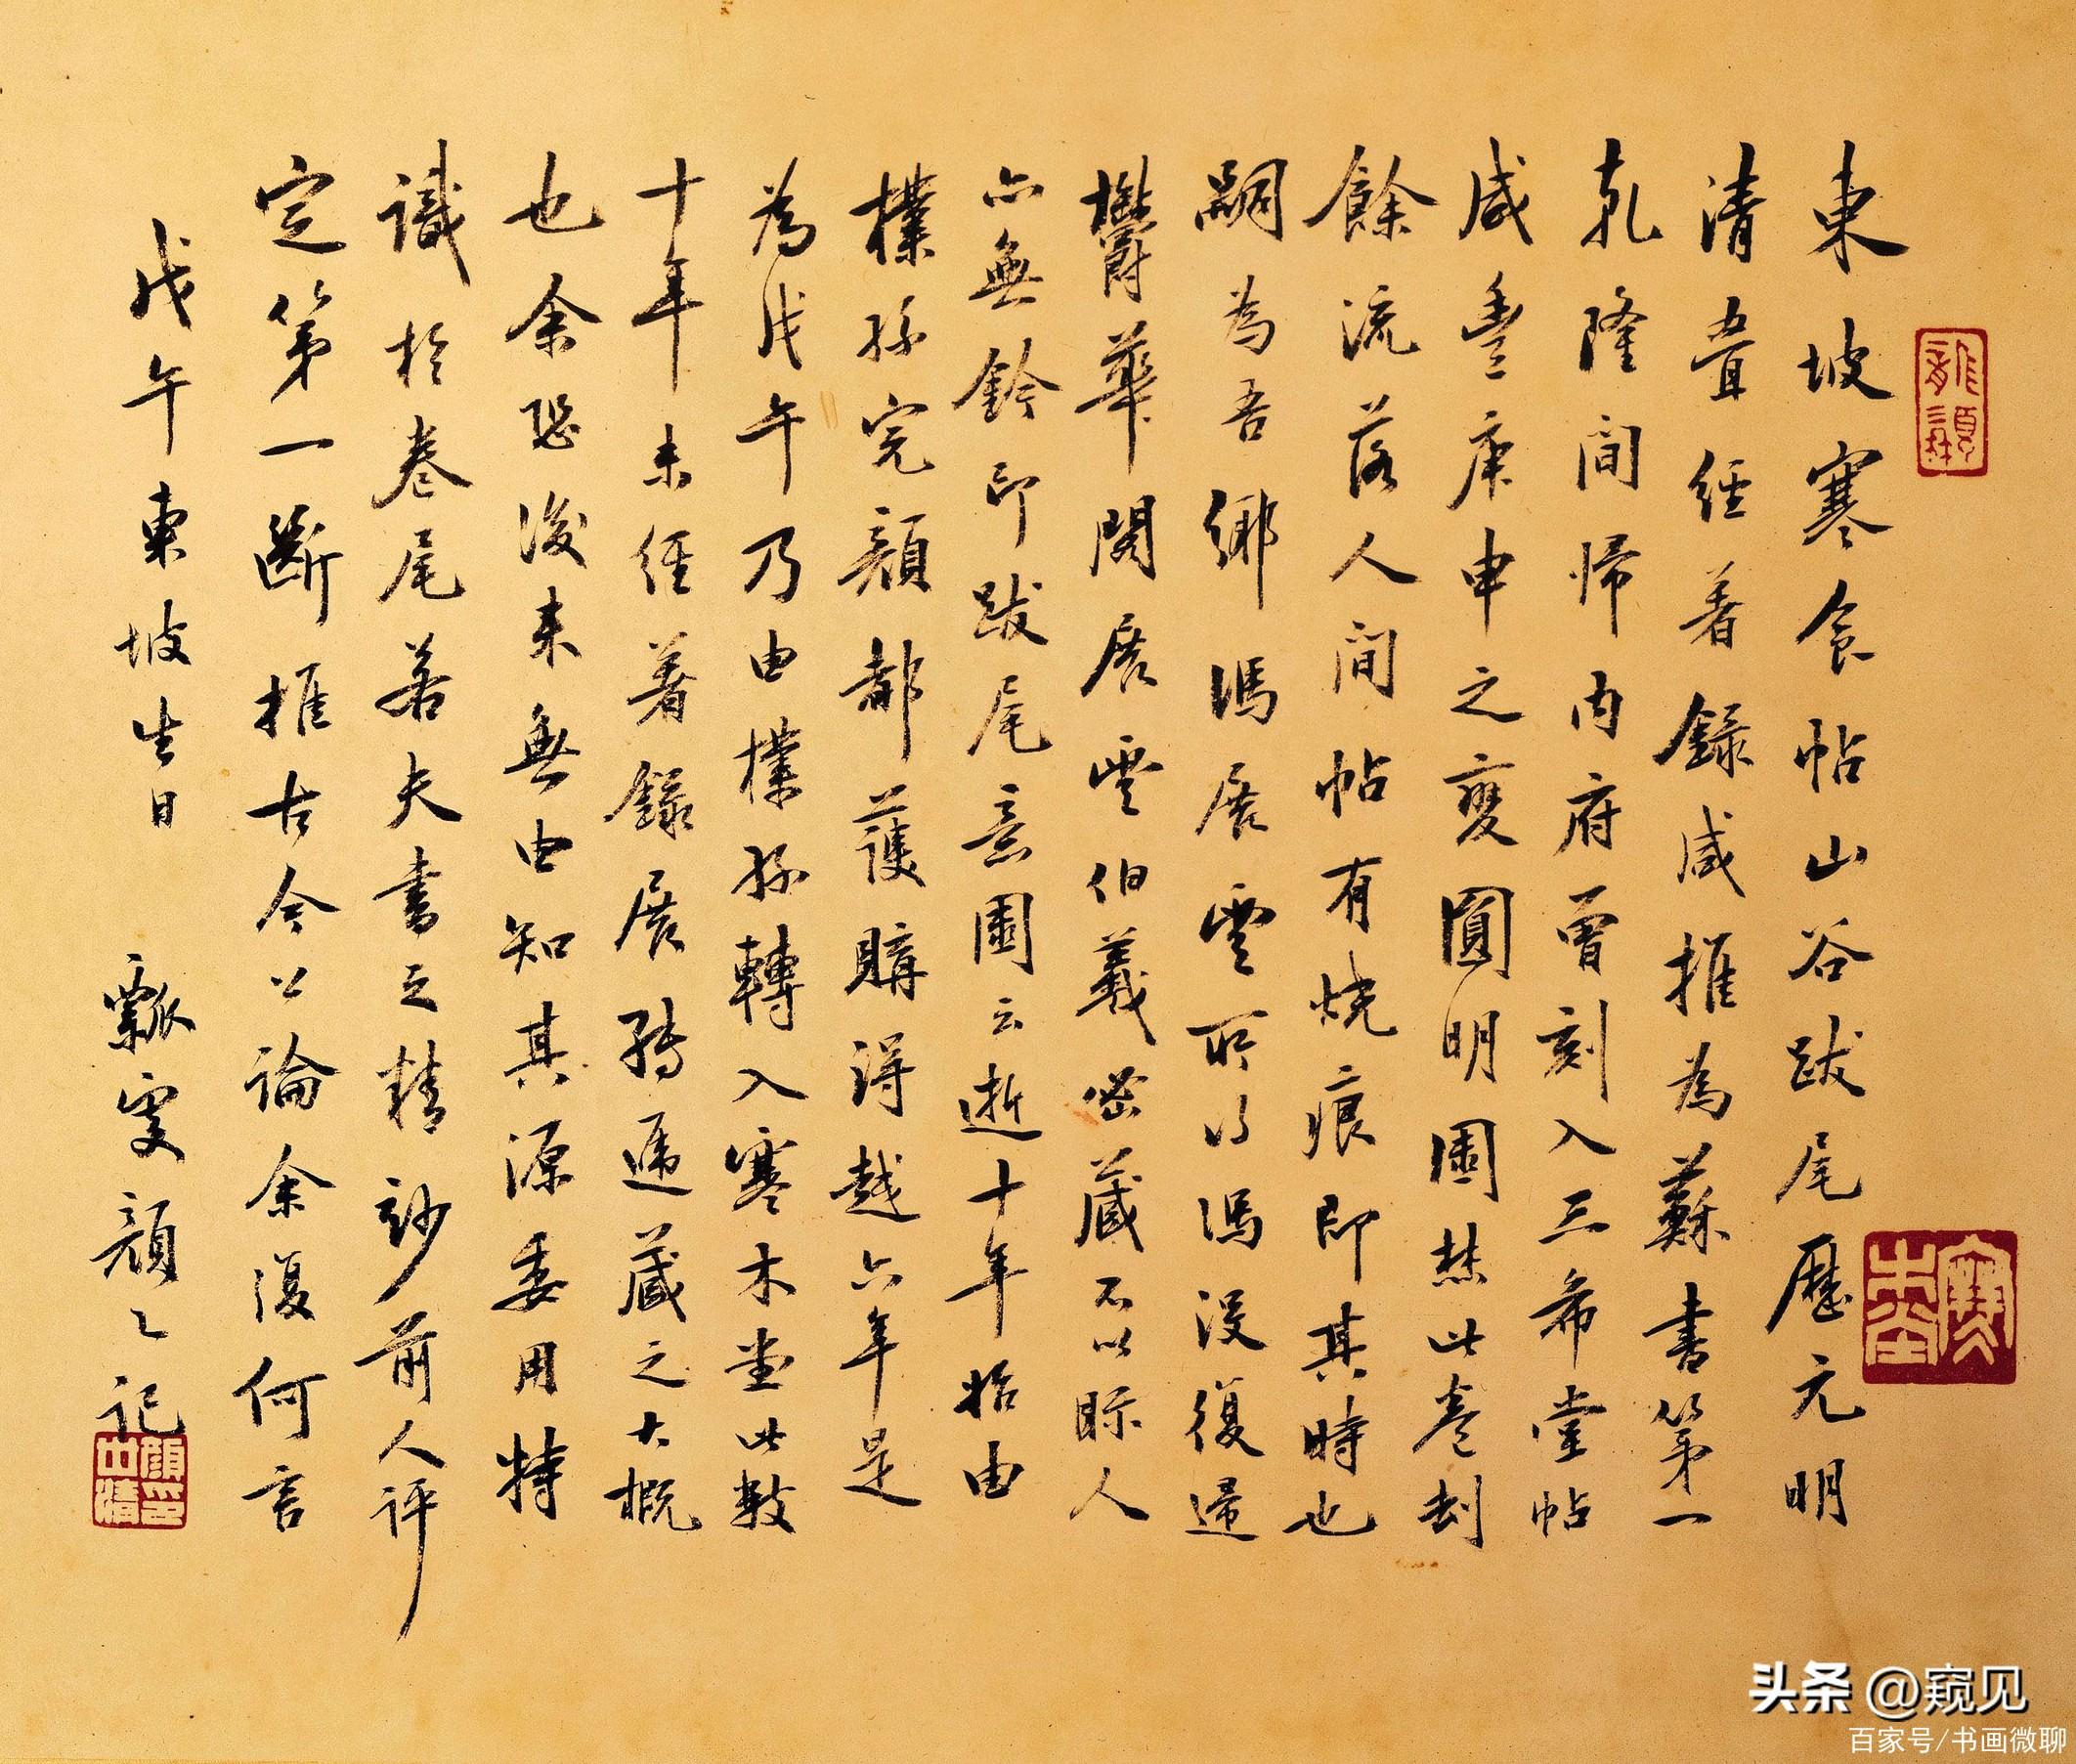 東坡寒食帖山谷跋尾歷元明
清疊經著錄咸推為蘇書第一
乾隆間歸內府曾刻入三希堂帖
咸豐庚申之變圓明園焚此卷刦
餘流落人間帖有燒痕即其時也
嗣為吾鄉馮展雲所得馮沒復歸
鬱華閣展雲伯羲密藏不以眎人
亦無鈐印跋尾意園云逝十年始由
樸孫完顏都護購得越六年是
為戊午乃由樸孫轉入寒木堂此數
十年未經著錄展轉遞藏之大概
也余恐後來無由知其源委用特
識於卷尾若夫書之精妙前人評
定第一斷推古今公論余復何言
戊午東坡生日 瓢叟顏記
寒木堂
头条 @窥见
百家号/书画微聊